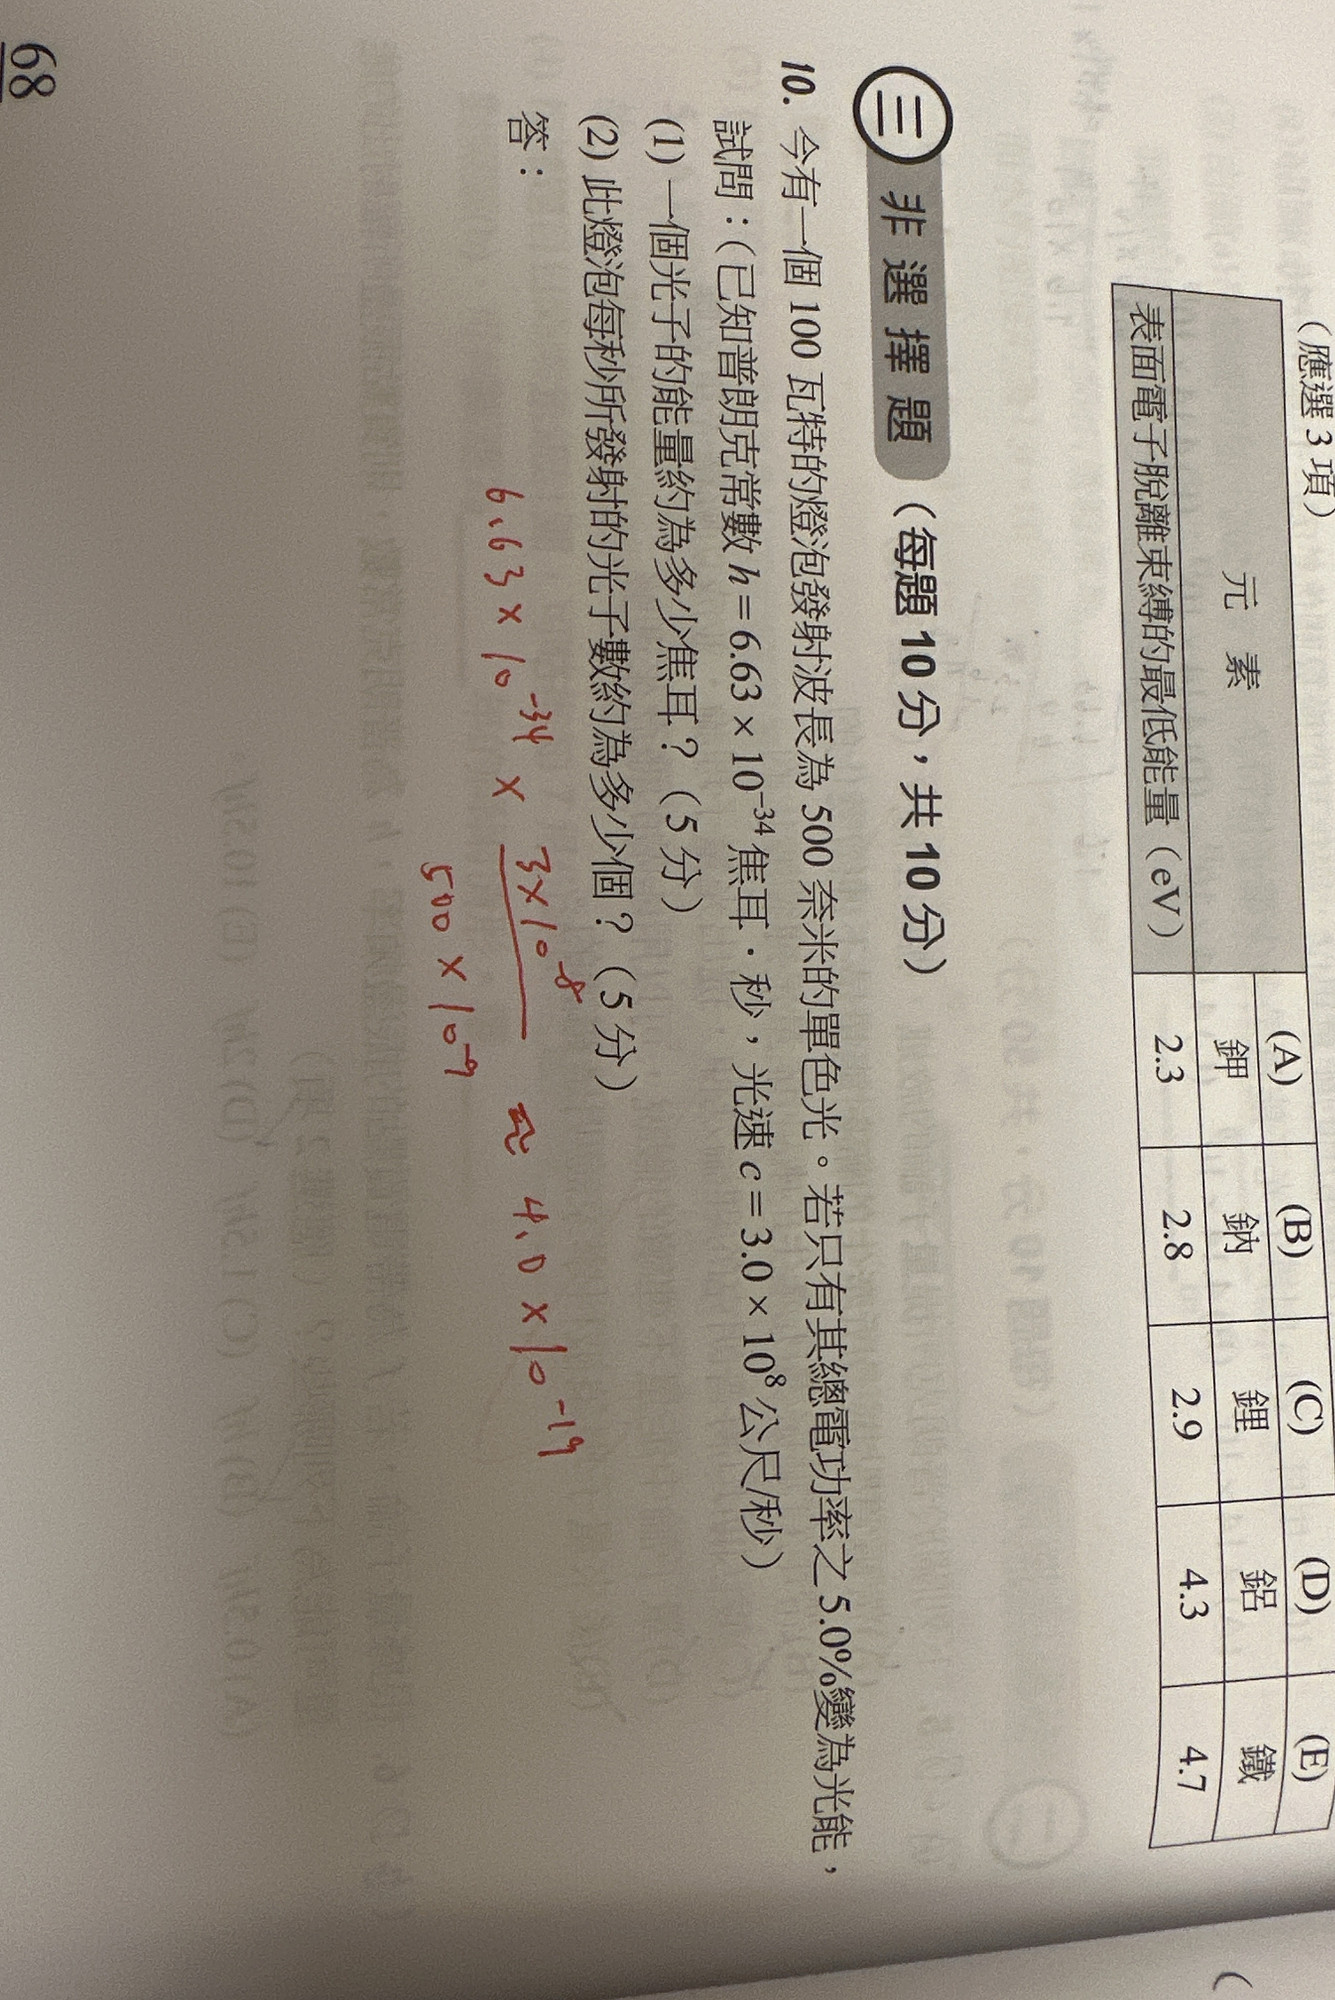 （應選 3 項）
(A) (B) (C) (D) (E)
元素 鉀 鈉 鋰 鋁 鐵
表面電子脫離束縛的最低能量（eV） 2.3 2.8 2.9 4.3 4.7
三 非選擇題（每題 10 分，共 10 分）
10. 今有一個 100 瓦特的燈泡發射波長為 500 奈米的單色光。若只有其總電功率之 5.0%變為光能，
試問：（已知普朗克常數 h = 6.63 × 10⁻³⁴ 焦耳．秒，光速 c = 3.0 × 10⁸ 公尺/秒）
(1) 一個光子的能量約為多少焦耳？（5 分）
(2) 此燈泡每秒所發射的光子數約為多少個？（5 分）
答：
6.63 × 10⁻³⁴ × 3×10⁻⁸ ≈ 4.0 × 10⁻¹⁹
500 × 10⁻⁹
68